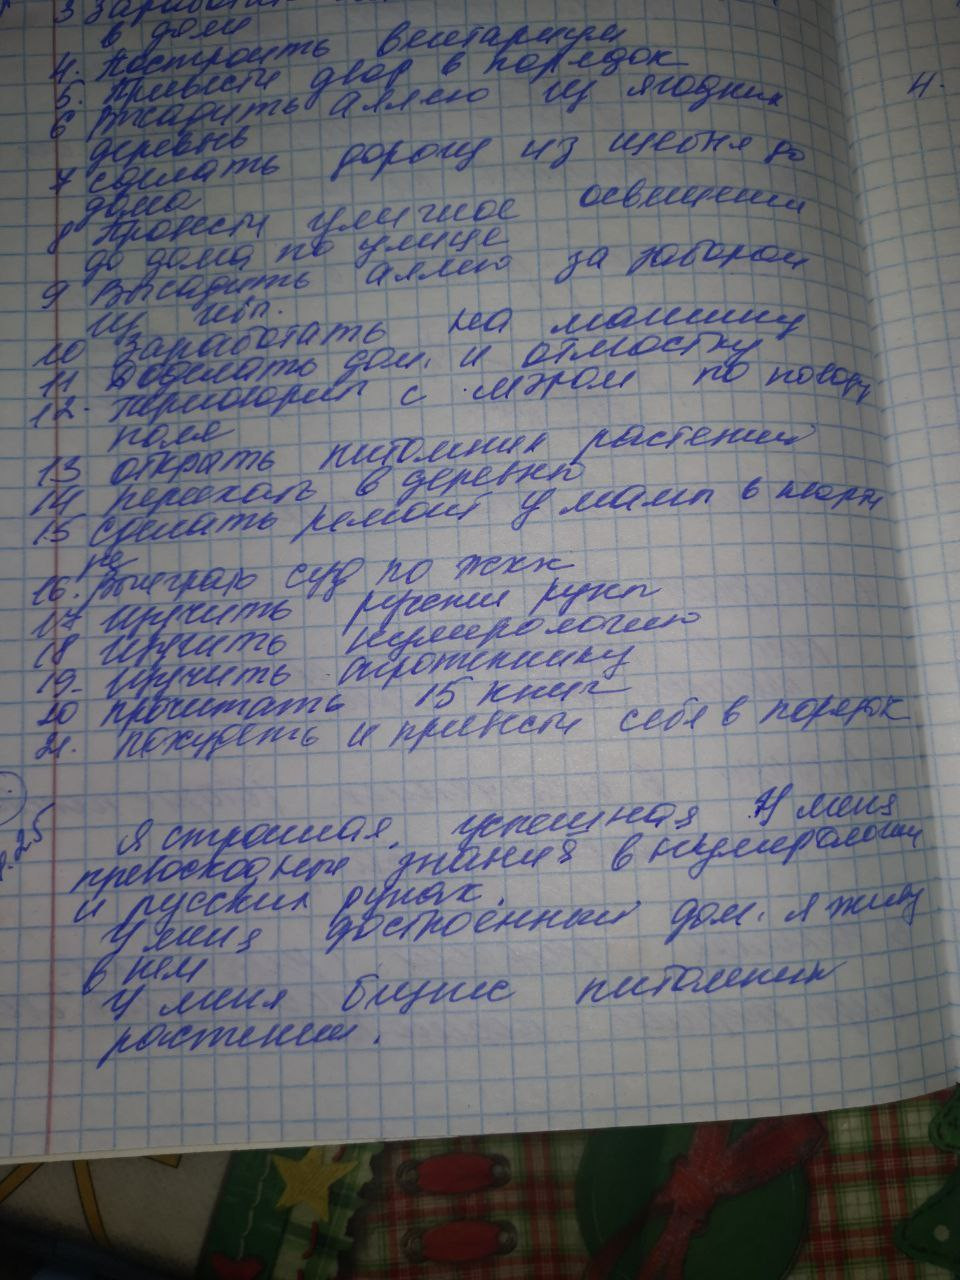 3 Заработать
в доме
4. Построить вегетарии
5. Привести двор в порядок
6 Высадить аллею из ягодных
деревьев
7 сделать дорогу из щебня до
дома
8 Провести уличное освещение
до дома по улице
9 Высадить аллею за забором
из
10 Заработать на машину
11 Доделать дом. и отмостку
12. переговорить с мэром по поводу
поля
13 открыть питомник растений
14 переехать в деревню
15 сделать ремонт у мамы в кварти
ре
16. Выиграю суд по ЖКХ
17 изучить руны
18 изучить нумерологию
19. изучить
20 прочитать 15 книг
21. похудеть и привести себя в порядок
4.
.25
Я стройная, успешная У меня
превосходные знания в нумерологии
и русских рунах.
У меня достроенный дом. я живу
в нем
У меня бизнес питомник
растений.